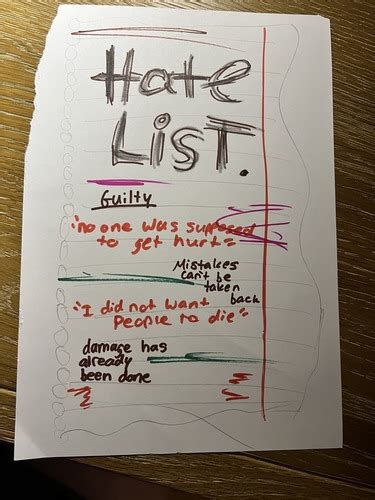 Hate
LiST.
Guilty
"no one was supposed
to get hurt"
Mistakes
can't be
taken
back
"I did not want
People to die"
damage has
already
been done